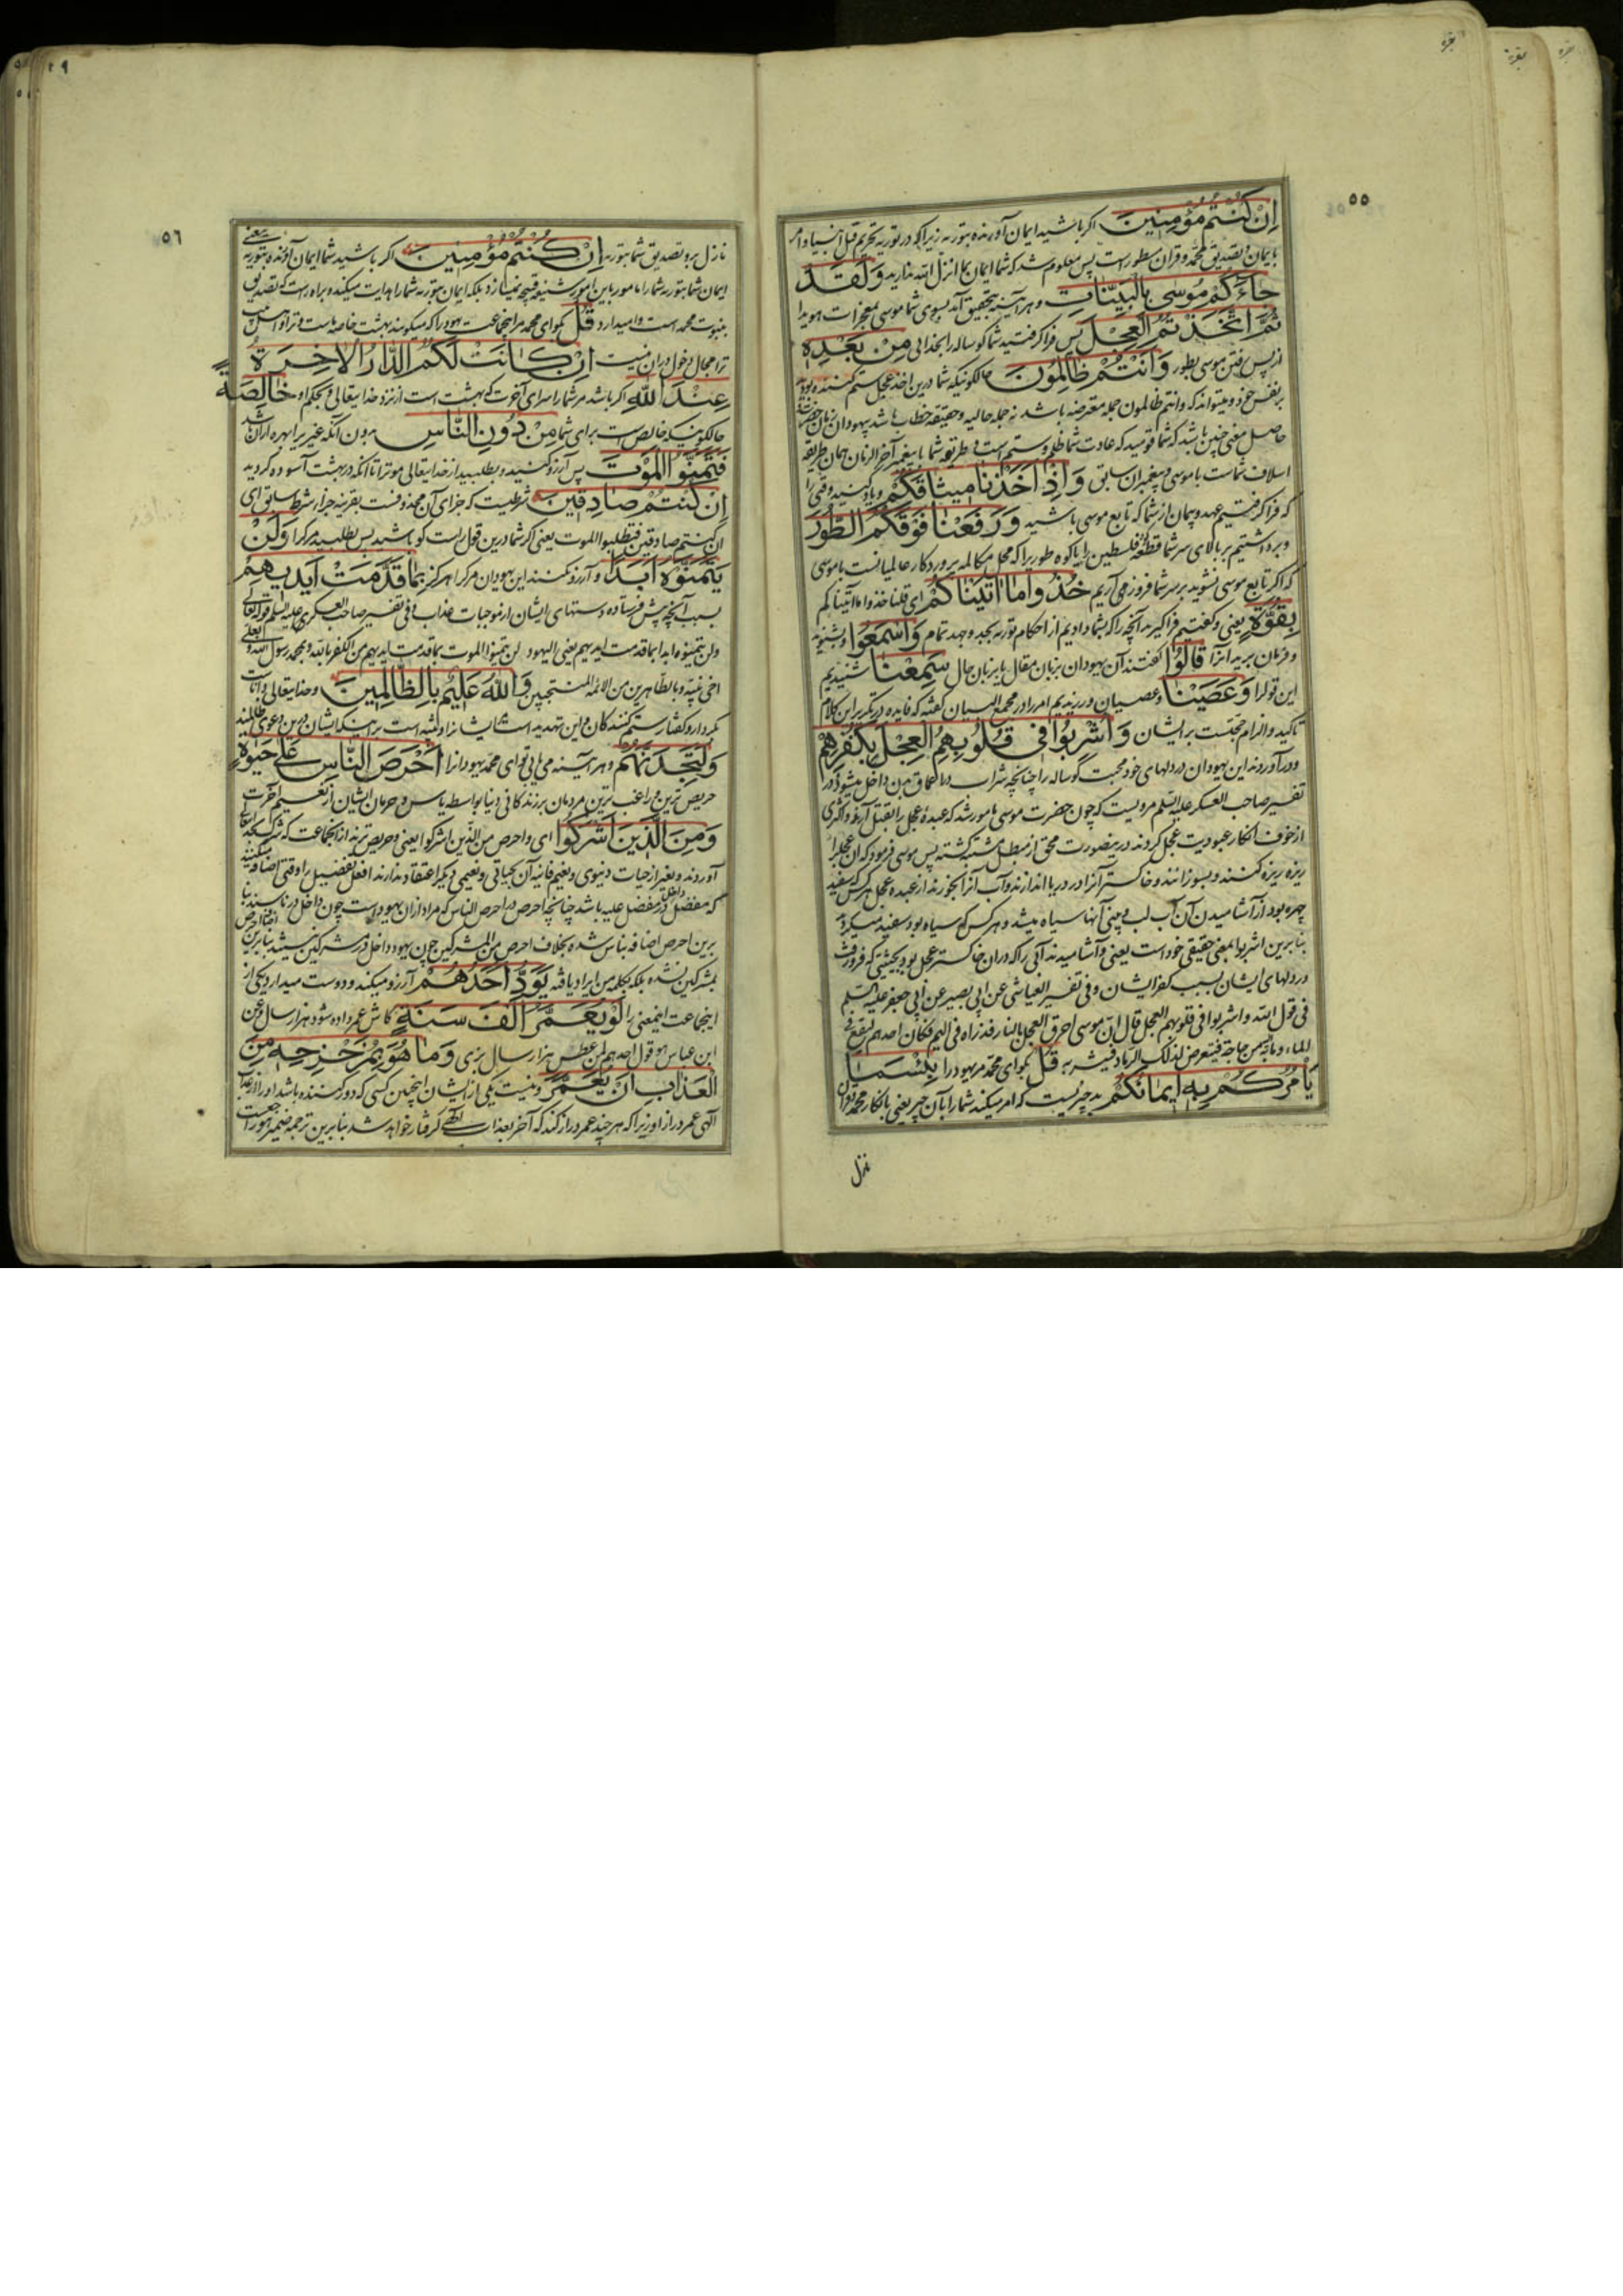 ٥٥
اِنْ كُنْتُمْ مُؤْمِنِينَ اكر باشيد ايمان آورنده بتورية زيرا كه در تورية تحريم قتل انبيا و امر
بايمان و تصديق محمد و قران مسطور است پس معلوم شد كه شما ايمان بما انزل الله نداريد وَلَقَدْ
جاءَكُمْ مُوسى بِالْبَيِّناتِ و هر آينه بتحقيق آمد بسوى شما موسى بمعجزات هويدا
ثُمَّ اتَّخَذْتُمُ الْعِجْلَ پس فرا كرفتيد شما كوساله را بخدائى مِنْ بَعْدِهِ
از پس رفتن موسى بطور وَاَنْتُمْ ظالِمُونَ حالكونيكه شما درين اخذ عجل ستم كننده بوديد
بر نفس خود و ميتواند كه و انتم ظالمون جمله معترضه باشد نه جمله حاليه و حقيقة خطاب باشد بيهودان زمان حضرت
حاصل معنى چنين باشد كه شما قوميد كه عادت شما ظلم و ستم است و طريقه شما با پيغمبر آخر الزمان همان طريقه
اسلاف شماست با موسى و پيغمبران سابق وَاِذْ اَخَذْنا مِيثاقَكُمْ و ياد كنيد وقتى را
كه فرا كرفتيم عهد و پيمان از شما كه تابع موسى باشيد وَرَفَعْنا فَوْقَكُمُ الطُّورَ
و برداشتيم بر بالاى سر شما قطعه فلسطين را يا كوه طور را كه محل مكالمه پروردكار عالميانست با موسى
كه اكر تابع موسى نشويد بر سر شما فرود مى آريم خُذُوا ما اتَيْناكُمْ اى قلنا خذوا ما اتيناكم
بِقُوَّةٍ يعنى و كفتيم فرا كيريد آنچه را كه بشما داديم از احكام تورية بجد و جهد تمام وَاسْمَعُوا و بشنويد
و فرمان بريد انرا قالُوا كفتند آن يهودان بزبان مقال يا بزبان حال سَمِعْنا شنيديم
اين قول را وَعَصَيْنا و عصيان ورزيديم امر را در مجمع البيان كفته كه فايده در تكرير اين كلام
تاكيد و الزام حجتست بر ايشان وَاُشْرِبُوا فِى قُلُوبِهِمُ الْعِجْلَ بِكُفْرِهِمْ
و در آوردند اين يهودان در دلهاى خود محبت كوساله را چنانچه شراب در اعماق بدن داخل ميشود و در
تفسير صاحب العسكر عليه السلم مرويست كه چون حضرت موسى مامور شد كه عبده عجل را بقتل آرد و اكثرى
از خوف انكار عبوديت عجل كردند درينصورت محق از مبطل مشتبه كشته پس موسى فرمود كه ان عجل را
ريزه ريزه كنند و بسوزانند و خاكستر آنرا در دريا اندازند و آب آنرا بخورند از عبده عجل هر كس كه سفيد
چهره بود از آشاميدن آن آب لب و بينى آنها سياه ميشد و هر كس كه سياه بود سفيد ميكرديد
بنابرين اشربوا بمعنى حقيقى خود است يعنى و آشاميدند آبى را كه دران خاكستر عجل بود بحيثيتى كه فرو رفت
در دلهاى ايشان بسبب كفر ايشان و فى تفسير العياشى عن ابى بصير عن ابى جعفر عليه السلم
فى قول الله و اشربوا فى قلوبهم العجل قال ان موسى احرق العجل بالنار فذراه فى اليم فكان احدهم ليقع فى
الماء و ما به اليه من حاجة فيتعرض لذلك الرماد فيشربه قُلْ بكو اى محمد مر يهود را بِئْسَما
يَأْمُرُكُمْ بِهِ اِيمانُكُمْ بد چيزيست كه امر ميكند شما را بآن چيز يعنى بانكار محمد و قران
نزل
٥٦
نازل برو تصديق شما بتورية اِنْ كُنْتُمْ مُؤْمِنِينَ اكر باشيد شما ايمان آورنده بتورية يعنى
ايمان شما بتورية شما را مامور باين امور شنيعه قبيحه نميسازد بلكه ايمان بتورية شما را هدايت ميكند و براه راست كه تصديق
بنبوت محمد است واميدارد قُلْ بكو اى محمد مر انجماعت يهود را كه ميكويند بهشت خاصه ماست و ترا و اهل بيت
ترا مجال دخول دران نيست اِنْ كانَتْ لَكُمُ الدَّارُ الْاخِرَةُ
عِنْدَ اللَّهِ اكر باشد مر شما را سراى آخرت كه بهشت است از نزد خدايتعالى و بحكم او خالِصَةً
حالكونيكه خالص است براى شما مِنْ دُونِ النَّاسِ بدون آنكه غير را بهره ازان باشد
فَتَمَنَّوُا الْمَوْتَ پس آرزو كنيد و بطلبيد از خدايتعالى موت را تا آنكه در بهشت آسوده كرديد
اِنْ كُنْتُمْ صادِقِينَ شرطيست كه جزاى آن محذوفست بقرينه جزاء شرط سابق اى
ان كنتم صادقين فتطلبوا الموت يعنى اكر شما درين قول راست كو باشيد پس بطلبيد مرك را وَلَنْ
يَتَمَنَّوْهُ اَبَدًا و آرزو نكنند اين يهودان مرك را هركز بِما قَدَّمَتْ اَيْدِيهِمْ
بسبب آنچه پيش فرستاده دستهاى ايشان از موجبات عذاب و فى تفسير صاحب العسكرى عليه السلم قوله تعالى
و لن يتمنوه ابدا بما قدمت ايديهم يعنى اليهود لن يتمنوا الموت بما قدمت ايديهم من الكفر بالله و بمحمد رسول الله و بعلى
اخى نبيه و بالطاهرين من الائمة المنتجبين وَاللَّهُ عَلِيمٌ بِالظَّالِمِينَ و خدايتعالى داناست
بكردار و كفتار ستم كنندكان و اين تهديد است ايشان را و تنبيه است بر اينكه ايشان درين دعوى ظالمند
وَلَتَجِدَنَّهُمْ و هر آينه مى يابى تو اى محمد يهودانرا اَحْرَصَ النَّاسِ عَلى حَيوةٍ
حريص ترين و راغب ترين مردمان بر زندكانى دنيا بواسطه ياس و حرمان ايشان از نعيم آخرت
وَمِنَ الَّذِينَ اَشْرَكُوا اى و احرص من الذين اشركوا يعنى و حريص ترند از انجماعت كه شرك بخدايتعالى
آوردند و بغير از حيات دنيوى و نعيم فانيه آن بحياتى و نعيمى ديكر اعتقاد ندارند افعل تفضيل را وقتى اضافه ميكنند
كه مفضل داخل در مفضل عليه باشد چنانچه احرص در احرص الناس كه مراد ازان يهود است چون داخل در ناسند بنا
برين احرص اضافه بناس شده بخلاف احرص من المشركين چون يهود داخل در مشركين نيستند بنابرين اضافه احرص
بمشركين نشده بلكه بكلمه من ايراد يافته يَوَدُّ اَحَدُهُمْ آرزو ميكند و دوست ميدارد يكى از
اينجماعت اينمعنى را لَوْ يُعَمَّرُ اَلْفَ سَنَةٍ كاش عمر داده شود هزار سال و عن
ابن عباس هو قول احدهم لمن عطس هزار سال بزى وَما هُوَ بِمُزَحْزِحِهِ مِنَ
الْعَذابِ اَنْ يُعَمَّرَ و نيست يكى از ايشان اينچنين كسى كه دور كننده باشد او را از عذاب
الهى عمر دراز او زيرا كه هر چند عمر دراز كند كه آخر بعذاب الهى كرفتار خواهد شد بنابرين ترجمه ضمير هو راجعست